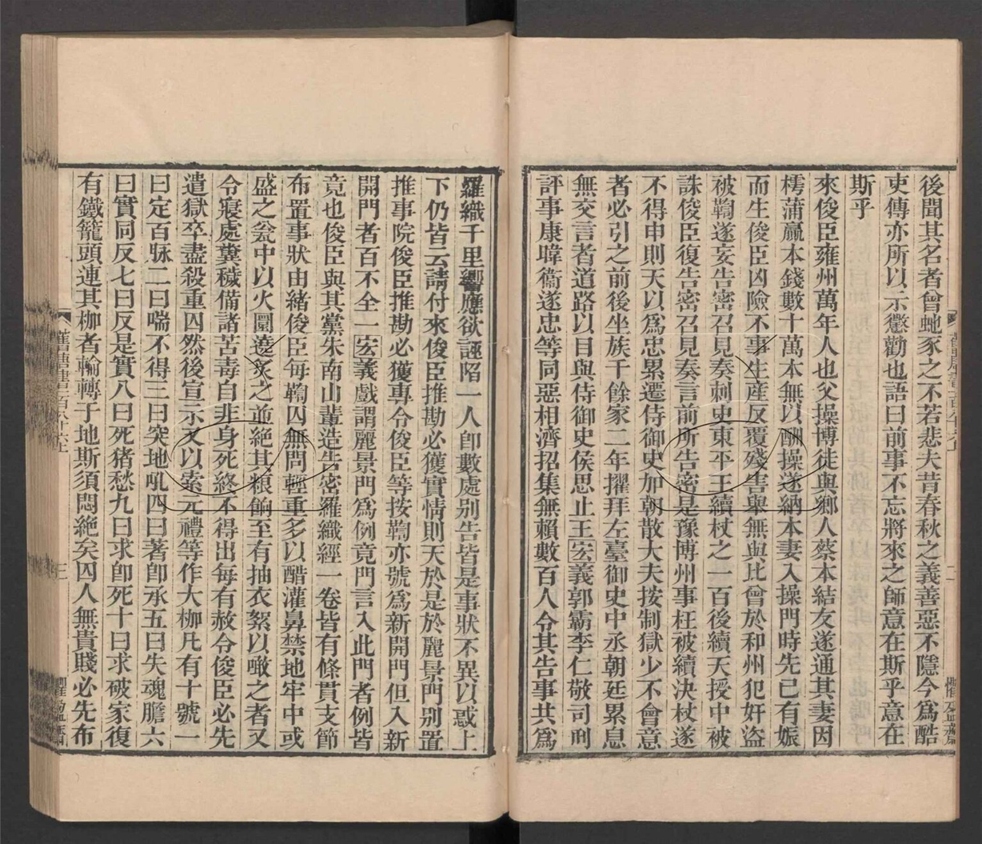 後聞其名者曾蚍豕之不若悲夫昔春秋之義善惡不隱今爲酷
吏傳亦所以示懲勸也語曰前事不忘將來之師意在斯乎意在
斯乎
來俊臣雍州萬年人也父操博徒與鄉人蔡本結友遂通其妻因
樗蒲贏本錢數十萬本無以酬操遂納本妻入操門時先已有娠
而生俊臣凶險不事生產反覆殘害舉無與比曾於和州犯奸盜
被鞫遂妄告密召見奏刺史東平王續杖之一百後續天授中被
誅俊臣復告密召見奏言前所告密是豫博州事枉被續決杖遂
不得申則天以爲忠累遷侍御史加朝散大夫按制獄少不會意
者必引之前後坐族千餘家二年擢拜左臺御史中丞朝廷累息
無交言者道路以目與侍御史侯思止王弘義郭霸李仁敬司刑
評事康暐衞遂忠等同惡相濟招集無賴數百人令其告事共爲
舊唐書一百八十六上
二
懼盈齋
羅織千里響應欲誣陷一人卽數處別告皆是事狀不異以惑上
下仍皆云請付來俊臣推勘必獲實情則天於是於麗景門別置
推事院俊臣推勘必獲專令俊臣等按鞫亦號爲新開門但入新
開門者百不全一弘義戲謂麗景門爲例竟門言入此門者例皆
竟也俊臣與其黨朱南山輩造告密羅織經一卷皆有條貫支節
布置事狀由緒俊臣每鞫囚無問輕重多以醋灌鼻禁地牢中或
盛之瓮中以火圜遶炙之並絕其粮餉至有抽衣絮以噉之者又
令寢處糞穢備諸苦毒自非身死終不得出每有赦令俊臣必先
遣獄卒盡殺重囚然後宣示又以索元禮等作大枷凡有十號一
曰定百脉二曰喘不得三曰突地吼四曰著卽承五曰失魂膽六
曰實同反七曰反是實八曰死猪愁九曰求卽死十曰求破家復
有鐵籠頭連其枷者輪轉于地斯須悶絕矣囚人無貴賤必先布
舊唐書一百八十六上
三
懼盈齋